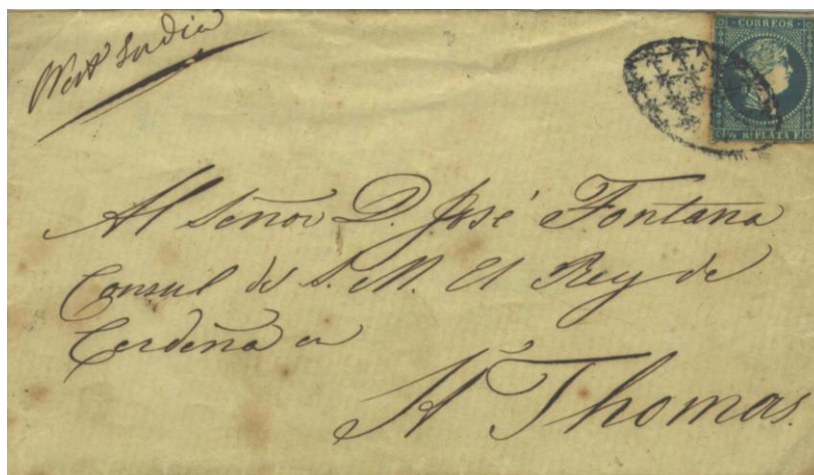 West India
· CORREOS ·
½ Rl PLATA F.
Al Señor D. José Fontana
Consul de S. M. El Rey de
Cerdeña en
St Thomas.